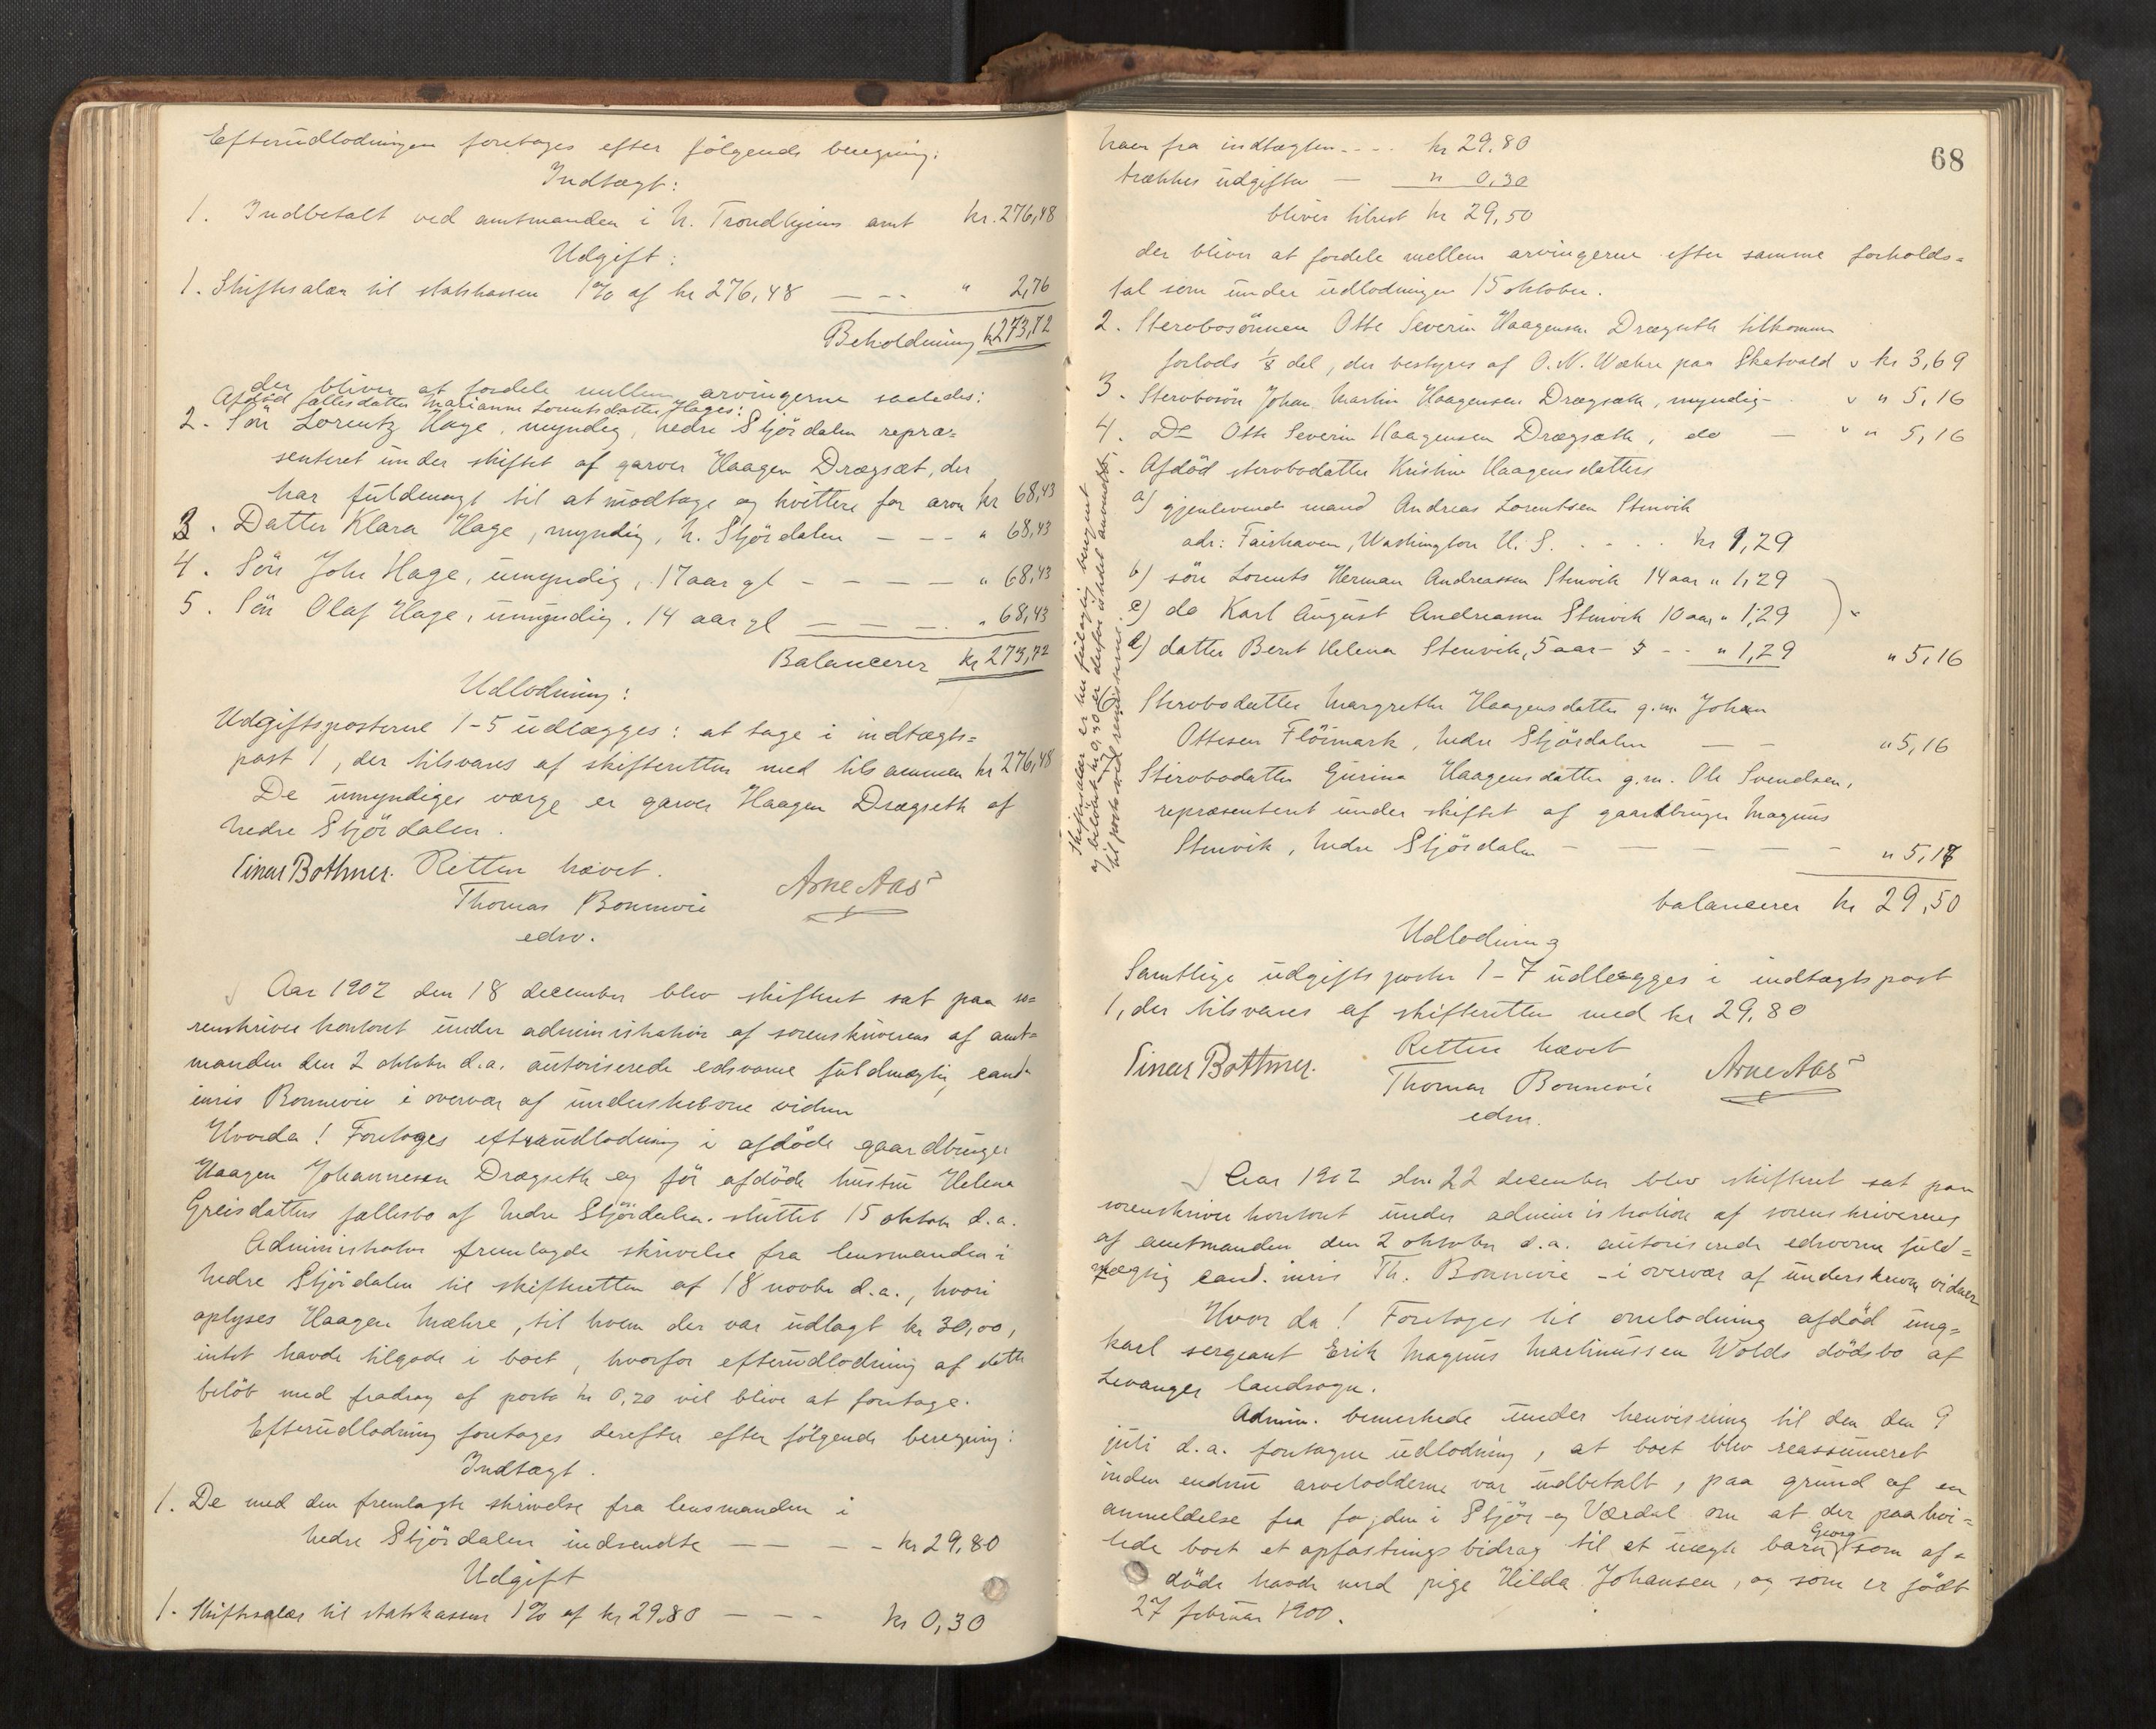 Efterudlodningen foretages efter følgende beregning:
Indtægt:
1. Indbetalt ved amtmanden i N. Trondhjems amt kr. 276,48
Udgift:
1. Skiftesalær til statskassen 1% af kr 276,48 — - - " 2,76
Beholdning kr 273,72
der bliver at fordele mellem arvingerne saaledes:
Afdöd fællesdatter Marianne Lorentsdatter Hages:
2. Sön Lorentz Hage, myndig, nedre Stjördalen repræ=
senteret under skiftet af garver Haagen Drægsæt, der
har fuldmagt til at modtage og kvittere for arven kr 68,43
3. Datter Klara Hage, myndig, N. Stjördalen — - — " 68,43
4. Sön John Hage, umyndig, 17 aar gl - — - — — " 68,43
5. Sön Olaf Hage, umyndig, 14 aar gl — — — " 68,43
Balancerer kr 273,72
Udlodning:
Udgiftsposterne 1-5 udlægges: at tage i indtægts=
post 1, der tilsvares af skifteretten med tilsammen kr 276,48
De umyndiges værge er garver Haagen Drægseth af
nedre Stjördalen.
Einar Bothner. Retten hævet. Arne Aas
Thomas Bonnevie
edsv.
Aar 1902 den 18 december blev skifteret sat paa so=
renskriverkontoret under administration af sorenskriverens af amt=
manden den 2 oktober d.a. autoriserede edsvorne fuldmægtig, cand.
iuris Bonnevie i overvær af underskrevne vidner
Hvorda! Foretoges efterudlodning i afdöde gaardbruger
Haagen Johannesen Drægseth og för afdöde hustru Helena
Greisdatters fællesbo af nedre Stjördalen. sluttet 15 oktober d.a.
Administrator fremlagde skrivelse fra lensmanden i
nedre Stjördalen til skifteretten af 18 novbr d.a., hvori
oplyses Haagen Mæhre, til hvem der var udlagt kr 30,00,
intet havde tilgode i boet, hvorfor efterudlodning af dette
belöb med fradrag af porto kr 0,20 vil blive at foretage.
Efterudlodning foretages derefter efter fölgende beregning:
Indtægt.
1. De med den fremlagte skrivelse fra lensmanden i
nedre Stjördalen indsendte — — - - kr 29,80
Udgift
1. Skiftesalær til statskassen 1% af kr 29.80 — - - kr 0,30
68
Naar fra indtægten - - - - kr 29,80
trækkes udgifter — " 0,30
bliver tilrest kr 29,50
der bliver at fordele mellem arvingerne efter samme forholds=
tal som under udlodningen 15 oktober.
2. Stervbosönnen Otte Severin Haagensen Drægseth tilkommer
forlods 1/8 del, der bestyres af O. N. Wæhre paa Skatvold v kr 3,69
3. Stervbosön Johan Martin Haagensen Drægsæth, myndig - v " 5,16
4. Do Otte Severin Haagensen Drægsæth, do — v " 5,16
. Afdöd stervbodatter Kristine Haagensdatters
a) gjenlevende mand Andreas Lorentsen Stenvik
adr: Fairhaven, Washington U. S. . - . . kr 1,29
b) sön Lorents Herman Andreassen Stenvik 14 aar " 1,29
c) do Karl August Andreassen Stenvik 10 aar " 1,29
d) datter Berit Helena Stenvik, 5 aar - - - " 1,29 " 5,16
Stervbodatter Margrethe Haagensdatter g.m. Johan
Ottesen Flöimark, nedre Stjördalen — — " 5,16
Stervbodatter Gurina Haagensdatter g.m. Ole Svendsen,
repræsenteret under skiftet af gaardbruger Magnus
Stenvik, nedre Stjördalen — — — — - " 5,17
balancerer kr 29,50
Skiftesalær er her feilagtig beregnet
og belöbet kr 0,30 er derfor istedet anvendt
til porto ved remisserne.
Udlodning
Samtlige udgiftsposter 1-7 udlægges i indtægtspost
1, der tilsvares af skifteretten med kr 29,80
Retten hævet
Einar Bothner. Thomas Bonnevie Arne Aas
edsv.
Aar 1902 den 22 december blev skifteret sat paa
sorenskriverkontoret under administration af sorenskriverens
af amtmanden den 2 oktober d.a. autoriserede edsvorne fuld=
mægtig cand. iuris Th. Bonnevie - i overvær af underskrevne vidner
Hvor da! Foretoges til omlodning afdöd ung=
karl sergeant Erik Magnus Martinussen Wolds dödsbo af
Levanger landsogn.
Admin. bemerkede under henvisning til den den 9
juli d.a. foretagne udlodning, at boet blev reassumeret
inden endnu arvelodderne var udbetalt, paa grund af en
anmeldelse fra fogden i Stjör- og Værdal om at der paahvi=
lede boet et opfostringsbidrag til et uægte barn Georg som af=
döde havde med pige Hilda Johansen, og som er födt
27 februar 1900.